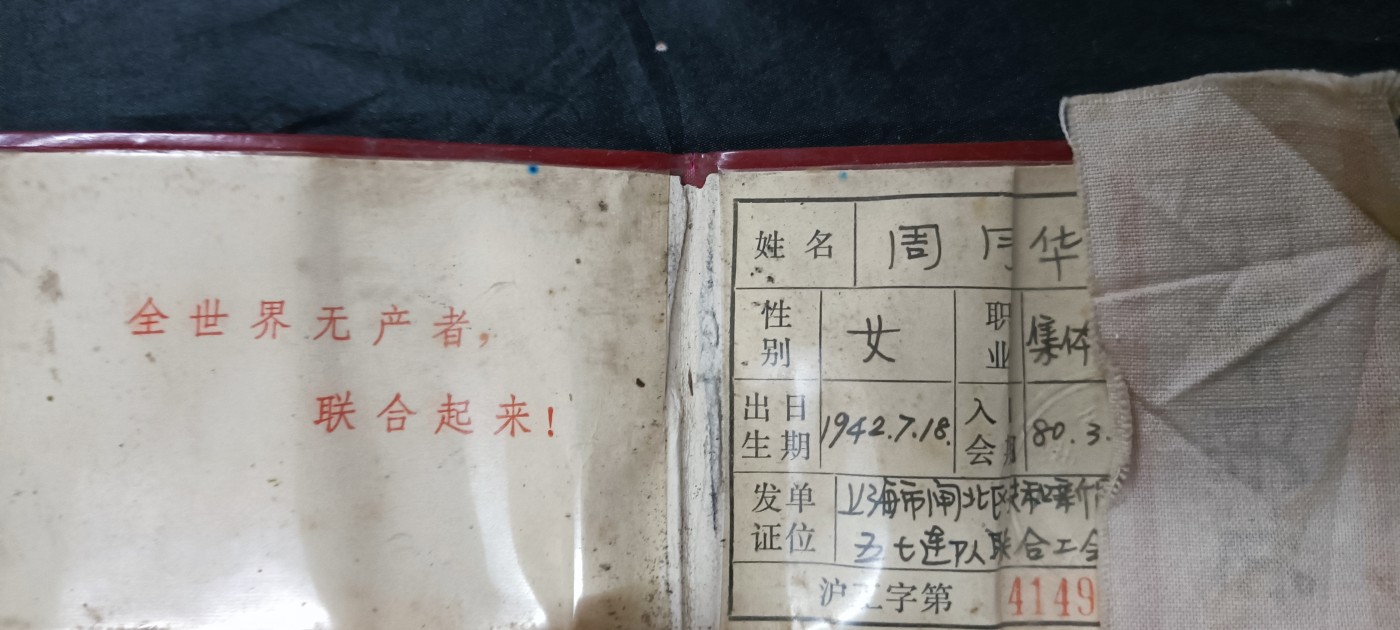 全世界无产者，
联合起来！
姓名 周 月华
性别 女 职业 集体
出生日期 1942.7.18. 入会 80.3.
发证单位 上海市闸北区
五七连队联合工会
沪工字第 4149